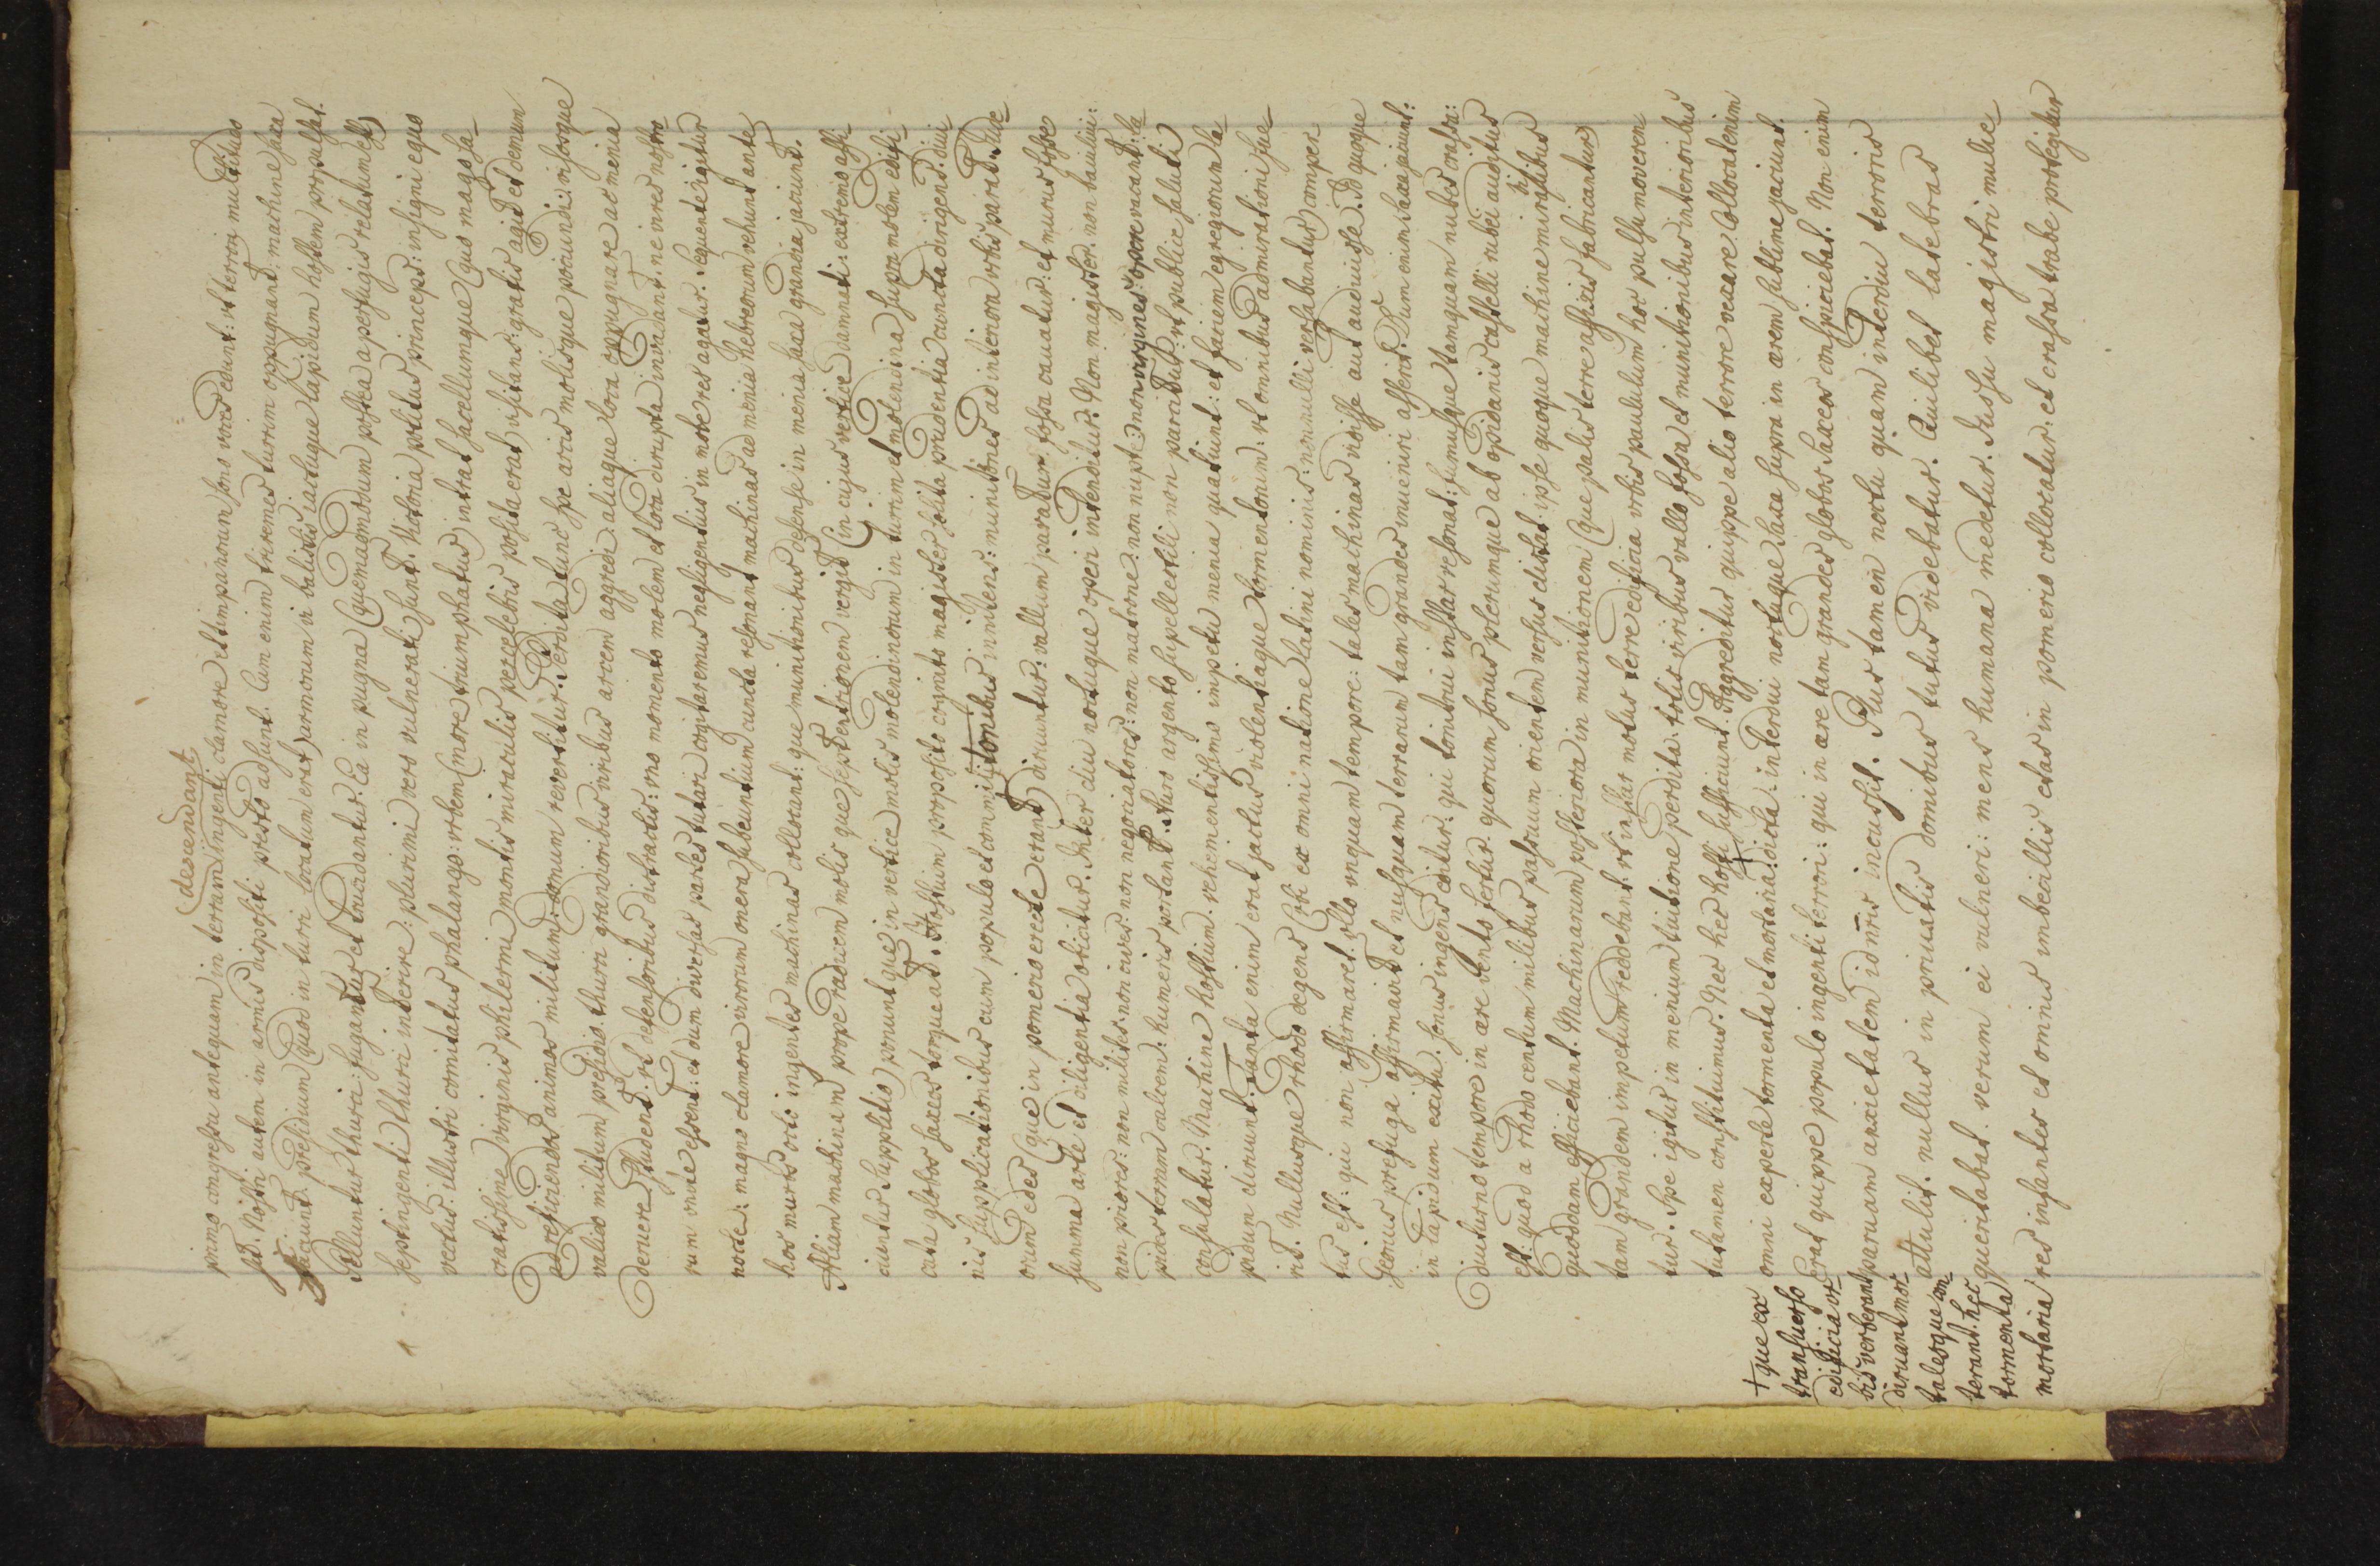 (descendant
primo congressu antequam in terram ingenti clamore et timpanorum sono voces edunt: vt terrori multitudo
sit. Nostri autem in armis dispositi presto adsunt. Cum enim triremes turrim oppugnant: machine saxa
jaciunt. presidium (quod in turri locatum erat) armorum vi balistis jactuque lapidum hostem propulsat.
Pelluntur thurci: fugantur et trucidantur. Ea in pugna (quemadmodum postea a perfugis relatum est)
septingenti thurci interire: plurimi vero vulnerati sunt. Victoria potitus princeps: insigni equo
vectus: illustri comitatus phalange: vrbem (more triumphatus) intrat sacellumque (quo mago sa-
cratissime virginis philermi montis miraculis percelebris posita erat) visitans: gratis agit et demum
ad reficiendos animos militum: domum revertitur. Perdita tunc spe arcis molisque pociundi: infesque
valido militum presidio. thurci grandioribus viribus arcem aggredi. aliaque loca oppugnare ac menia
deruere student. vt defensoribus distractis: vno momento molem et loca dirupta invadant. ne vires nostro-
rum vnde essent: et dum diversas partes tutari cogitaremus negligentius in mole res agatur. sequente igitur
nocte: magno clamore virorum onera subeuntium cuncta resonant machinas ad menia hebreorum vehunt ante
hos muros octo ingentes machinas collocant: que munitionibus defense in menia saxa grandia jaciunt.
Aliam machinam prope radicem molis que septentrionem vergit (in cujus vertice damnati: extremo affi-
ciuntur supplitio) ponunt que in vertice molis molendinorum in turrim et molendina supra molem edifi-
cata globos saxeos torqueat. Hostium proposito cognito magister solita prudentia cuncta dirigens: dui-
nis supplicationibus cum populo et commilitonibus innitens: munitiones ad interiora vrbis parat. Jude-
orum edes (que in pomerio erecte erant) diruuntur: vallum paratur fossa cauatur: et murus fosse
summa arte et diligentia obicitur. Inter diu noctuque operi intenditur. Non magister. non bauliui:
non priores: non milites. non ciues: non negociatores: non matrone: non nupte: non virgines: opere vacant: la-
pides terram calcem: humeris portant. Auro argento supellectili non parcitur: vt publice saluti
consulatur. Machine hostium. vehementissimo impetu menia quatiunt: et faciem egregiorum la-
pidum diruunt. Tanta enim erat jactus violentiaque tormentorum: vt omnibus admirationi fue-
rit. Nullusque rhodo degens (vbi ex omni natione latini nominis: nonnulli versabantur) comper-
tus est: qui non affirmaret. vllo vnquam tempore: tales machinas vidisse aut audiuisse. Id quoque
Georius prefuga affirmauit et nusquam terrarum tam grandes inueniri asserit. Dum enim saxa jaciunt:
in lapidum exitu. sonus ingens editur: qui tonitrui instar resonat: fumusque tamquam nubes crassa:
diuturno tempore in aere vento fertur. quorum sonus plerumque ab opidanis castelli rubei auditus
est: quod a rhodo centum milibus passuum orientem versus distat. ipse quoque machine muralibus
quoddam efficiebant. Machinarum posteriora in munitionem (que palis terre affixis fabricantur)
tam grandem impetum reddebant: vt instar motus terre edificia vrbis paululum hoc pulsu moverem-
tur. Spe igitur in menium tuitione perdita. totis viribus vallo fossa et munitionibus interioribus
tutamen constituimus. Nec hec hosti sufficiunt. Aggreditur quippe alio terrore vexare. Collocat enim
omni ex parte tormenta et mortaria: dicta: † interdiu noctuque saxa supra in aerem sublime jaciunt.
Erat quippe populo ingenti terrori: qui in aere tam grandes globos saxeos conspiciebat. Non enim
paruam anxietatem id nostris incussit. Plus tamen noctu quam interdiu terroris
attulit. nullus in priuatis domibus tutus videbatur. Cuilibet latebras
queritabat. verum ei vulneri: mens humana medetur. Jussu magistri mulie-
res infantes et omnis imbecillis etas in pomerio collocatur. et crassa trabe protegitur
† que ex
transuerso
edificia vr-
bis verberant
diruant mor-
talesque con-
terant. hec
tormenta
mortaria